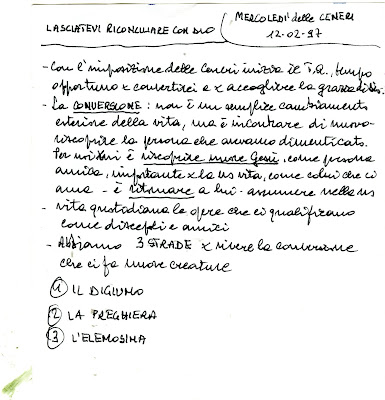 LASCIATEVI RICONCILIARE CON DIO
MERCOLEDI' delle CENERI
12-02-97
- Con l'imposizione delle Ceneri inizia il T.Q., tempo
opportuno x convertirci e x accogliere la grazia di Dio.
- La CONVERSIONE: non è un semplice cambiamento
esteriore della vita, ma è incontrare di nuovo-
riscoprire la persona che avevamo dimenticato.
Per noi è riscoprire Gesù, come persona
amica, importante x la ns vita, come colui che ci
ama - è ritornare a lui - assumere nella ns
vita quotidiana le opere che ci qualificano
come discepoli e amici
- Abbiamo 3 STRADE x vivere la conversione
che ci fa nuove creature
1 IL DIGIUNO
2 LA PREGHIERA
3 L'ELEMOSINA